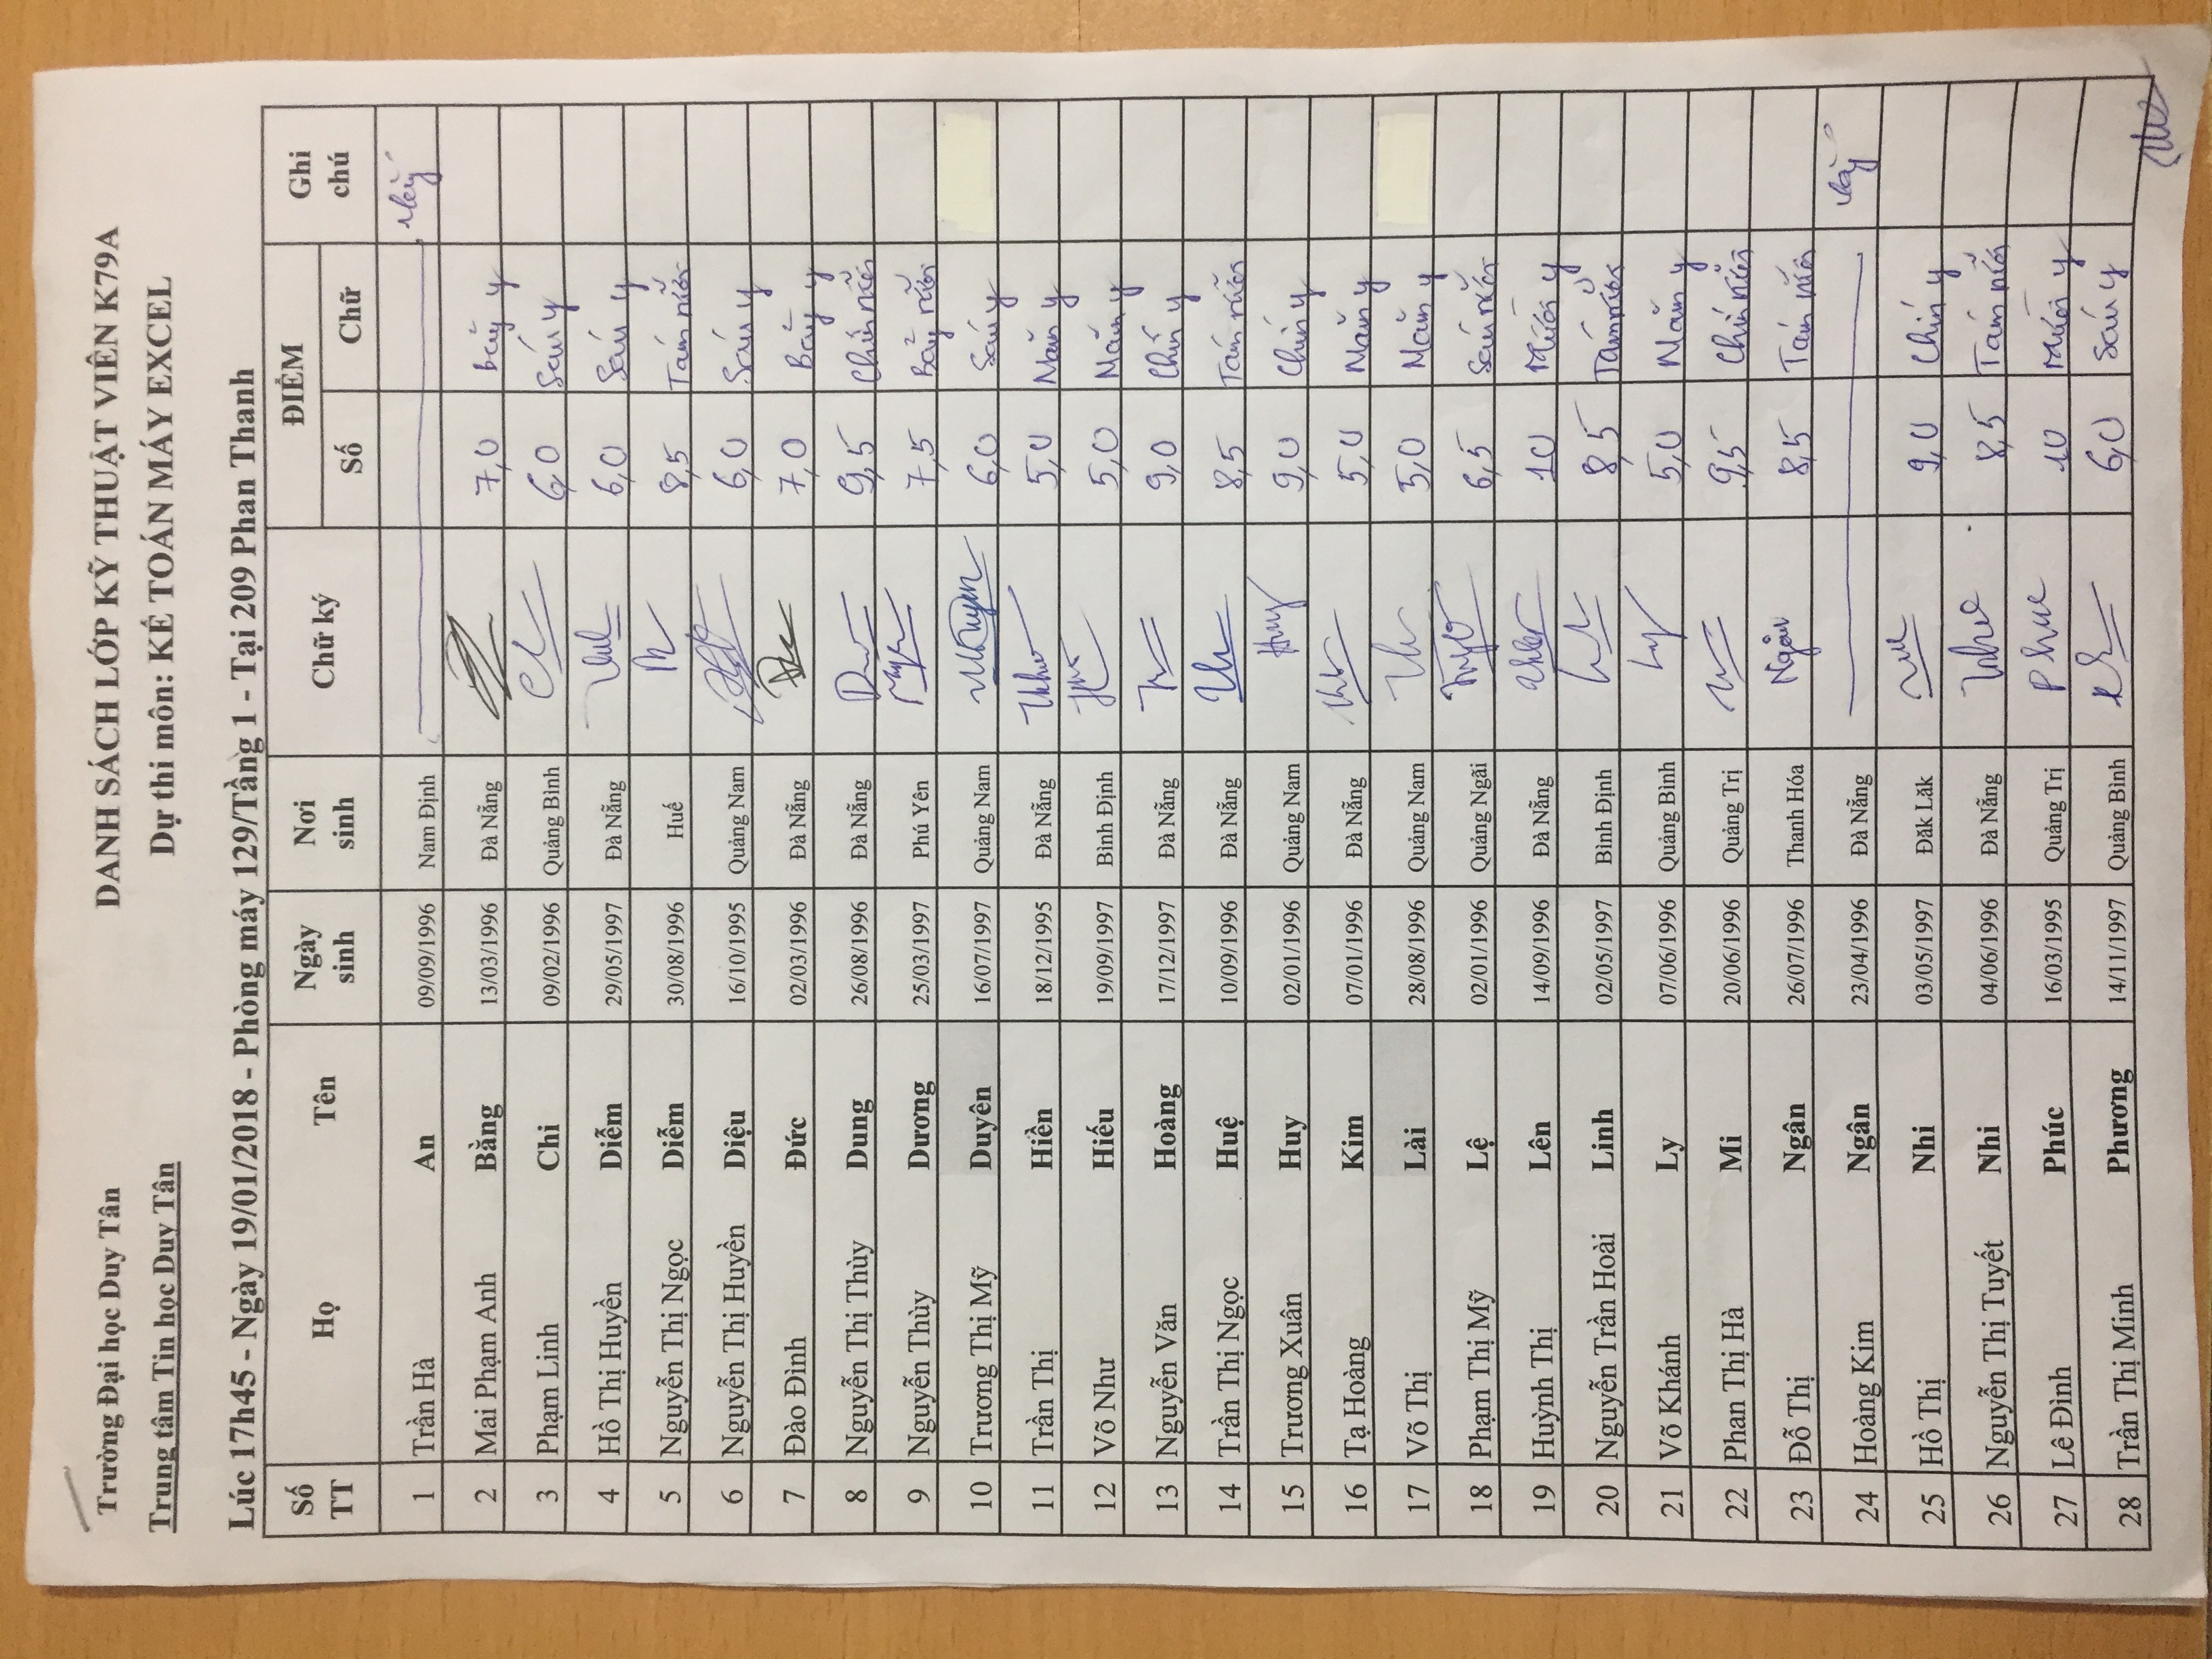 Trường Đại học Duy Tân
Trung tâm Tin học Duy Tân
DANH SÁCH LỚP KỸ THUẬT VIÊN K79A
Dự thi môn: KẾ TOÁN MÁY EXCEL
Lúc 17h45 - Ngày 19/01/2018 - Phòng máy 129/Tầng 1 - Tại 209 Phan Thanh
Số TT Họ Tên Ngày sinh Nơi sinh Chữ ký ĐIỂM Ghi chú
Số Chữ
1 Trần Hà An 09/09/1996 Nam Định
2 Mai Phạm Anh Bằng 13/03/1996 Đà Nẵng 7,0 Bảy y
3 Phạm Linh Chi 09/02/1996 Quảng Bình 6,0 Sáu y
4 Hồ Thị Huyền Diễm 29/05/1997 Đà Nẵng 6,0 Sáu y
5 Nguyễn Thị Ngọc Diễm 30/08/1996 Huế 8,5 Tám rưỡi
6 Nguyễn Thị Huyền Diệu 16/10/1995 Quảng Nam 6,0 Sáu y
7 Đào Đình Đức 02/03/1996 Đà Nẵng 7,0 Bảy y
8 Nguyễn Thị Thùy Dung 26/08/1996 Đà Nẵng 9,5 Chín rưỡi
9 Nguyễn Thùy Dương 25/03/1997 Phú Yên 7,5 Bảy rưỡi
10 Trương Thị Mỹ Duyên 16/07/1997 Quảng Nam 6,0 Sáu y
11 Trần Thị Hiền 18/12/1995 Đà Nẵng 5,0 Năm y
12 Võ Như Hiếu 19/09/1997 Bình Định 5,0 Năm y
13 Nguyễn Văn Hoàng 17/12/1997 Đà Nẵng 9,0 Chín y
14 Trần Thị Ngọc Huệ 10/09/1996 Đà Nẵng 8,5 Tám rưỡi
15 Trương Xuân Huy 02/01/1996 Quảng Nam Huy 9,0 Chín y
16 Tạ Hoàng Kim 07/01/1996 Đà Nẵng 5,0 Năm y
17 Võ Thị Lài 28/08/1996 Quảng Nam 5,0 Năm y
18 Phạm Thị Mỹ Lệ 02/01/1996 Quảng Ngãi 6,5 Sáu rưỡi
19 Huỳnh Thị Lên 14/09/1996 Đà Nẵng 10 Mười y
20 Nguyễn Trần Hoài Linh 02/05/1997 Bình Định 8,5 Tám rưỡi
21 Võ Khánh Ly 07/06/1996 Quảng Bình Ly 5,0 Năm y
22 Phan Thị Hà Mi 20/06/1996 Quảng Trị 9,5 Chín rưỡi
23 Đỗ Thị Ngân 26/07/1996 Thanh Hóa Ngân 8,5 Tám rưỡi
24 Hoàng Kim Ngân 23/04/1996 Đà Nẵng
25 Hồ Thị Nhi 03/05/1997 Đăk Lăk 9,0 Chín y
26 Nguyễn Thị Tuyết Nhi 04/06/1996 Đà Nẵng 8,5 Tám rưỡi
27 Lê Đình Phúc 16/03/1995 Quảng Trị 10 Mười y
28 Trần Thị Minh Phương 14/11/1997 Quảng Bình 6,0 Sáu y